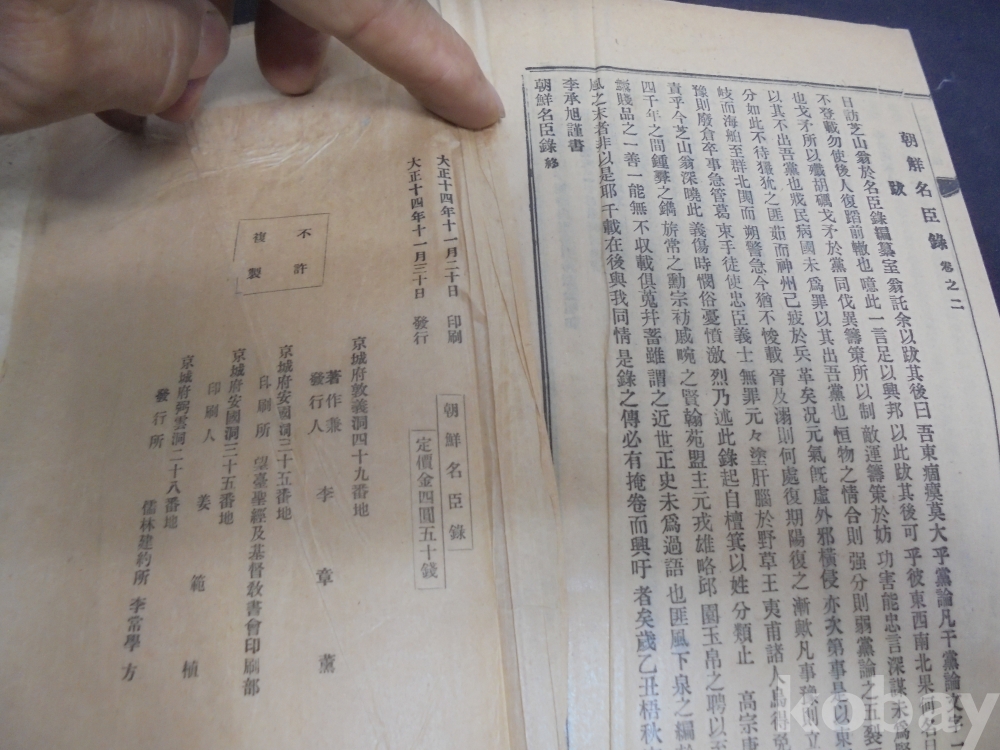 朝鮮名臣錄 卷之二
跋
日訪芝山翁於名臣錄編纂室翁託余以跋其後曰吾東痼瘼莫大乎黨論凡干黨論文字一
不登載勿使後人復蹈前轍也噫此一言足以興邦以此跋其後可乎彼東西南北果何名目
也戈矛所以殲胡礪戈矛於黨同伐異籌策所以制敵運籌策於妨功害能忠言深謀未爲
以其不出吾黨也戕民病國未爲罪以其出吾黨也恒物之情合則强分則弱黨論之五裂
分如此不待玁狁之匪茹而神州已疲於兵革矣况元氣旣虛外邪橫侵亦次第事是以東
岐而海舶至群北閧而朔警急今猶不悛載胥及溺則何處復期陽復之漸歟凡事豫則立
豫則廢倉卒事急管葛束手徒使忠臣義士無罪元々塗肝腦於野草王夷甫諸人烏得
責乎今芝山翁深曉此義傷時憫俗憂憤激烈乃述此錄起自檀箕以姓分類止 高宗
四千年之間鍾彛之鐫旂常之勳宗祊戚畹之賢翰苑盟主元戎雄略邱園玉帛之聘以至
賤品之一善一能無不收載俱蒐并蓄雖謂之近世正史未爲過語也匪風下泉之編於
風之末者非以是耶千載在後與我同情是錄之傳必有掩卷而興吁者矣歲乙丑梧秋
李承旭謹書
朝鮮名臣錄 終
大正十四年十一月二十日 印刷
大正十四年十一月三十日 發行
朝鮮名臣錄
定價金四圓五十錢
不許
複製
京城府敦義洞四十九番地
著作兼發行人 李章薰
京城府安國洞三十五番地
印刷所 望臺聖經及基督敎書會印刷部
京城府安國洞三十五番地
印刷人 姜範植
京城府弼雲洞二十八番地
發行所 儒林建約所 李常學方
kobay